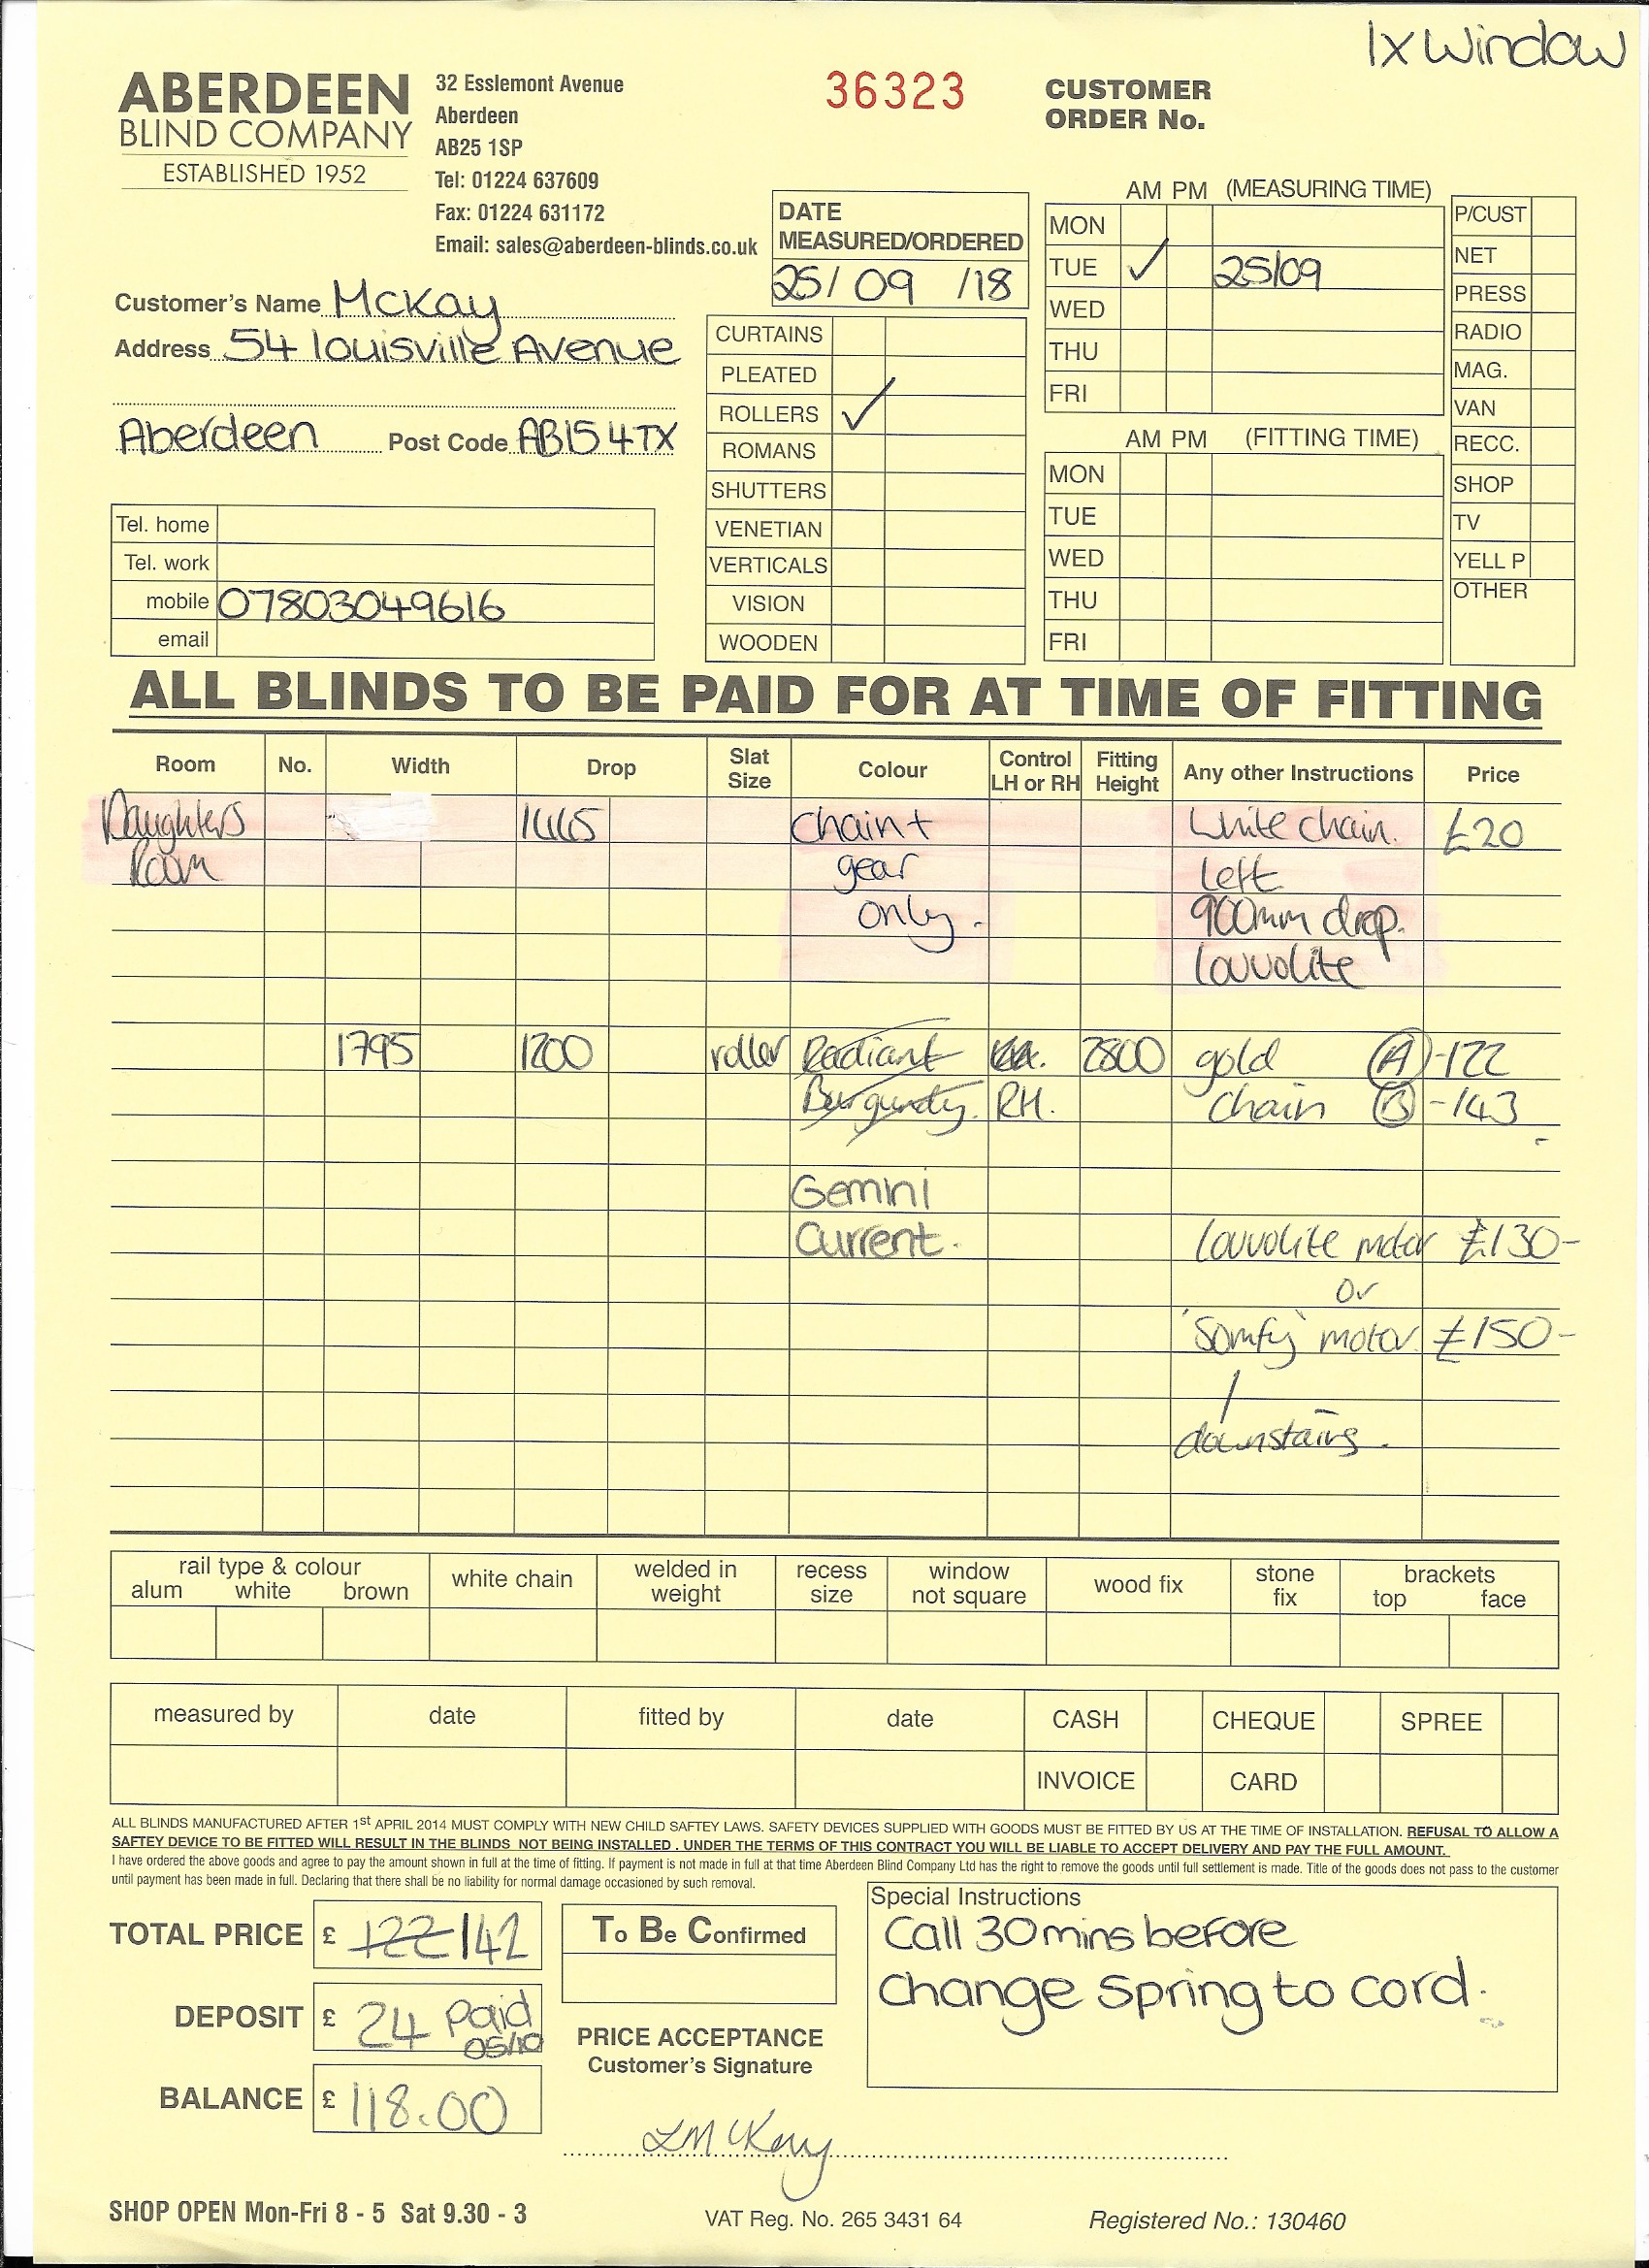 1x Window
ABERDEEN
BLIND COMPANY
ESTABLISHED 1952
32 Esslemont Avenue
Aberdeen
AB25 1SP
Tel: 01224 637609
Fax: 01224 631172
Email: sales@aberdeen-blinds.co.uk
36323
CUSTOMER
ORDER No.
DATE
MEASURED/ORDERED
25/ 09 /18
AM PM (MEASURING TIME)
MON
TUE ✓ 25/09
WED
THU
FRI
AM PM (FITTING TIME)
MON
TUE
WED
THU
FRI
P/CUST
NET
PRESS
RADIO
MAG.
VAN
RECC.
SHOP
TV
YELL P
OTHER
Customer's Name McKay
Address 54 louisville Avenue
Aberdeen Post Code AB15 4TX
Tel. home
Tel. work
mobile 07803049616
email
CURTAINS
PLEATED
ROLLERS ✓
ROMANS
SHUTTERS
VENETIAN
VERTICALS
VISION
WOODEN
ALL BLINDS TO BE PAID FOR AT TIME OF FITTING
Room No. Width Drop Slat Size Colour Control LH or RH Fitting Height Any other Instructions Price
Daughters 1445 Chain + White chain. £20
Room gear Left
only. 900mm drop.
Louvolite
1795 1200 roller Radiant 2800 gold (A) -122
Burgundy. RH. Chain (B) -143
Gemini
Current. Louvolite motor £130-
or
'Somfy' motor £150-
downstairs.
rail type & colour
alum white brown
white chain
welded in weight
recess size
window not square
wood fix
stone fix
brackets
top face
measured by date fitted by date CASH CHEQUE SPREE
INVOICE CARD
ALL BLINDS MANUFACTURED AFTER 1st APRIL 2014 MUST COMPLY WITH NEW CHILD SAFTEY LAWS. SAFETY DEVICES SUPPLIED WITH GOODS MUST BE FITTED BY US AT THE TIME OF INSTALLATION. REFUSAL TO ALLOW A
SAFTEY DEVICE TO BE FITTED WILL RESULT IN THE BLINDS NOT BEING INSTALLED . UNDER THE TERMS OF THIS CONTRACT YOU WILL BE LIABLE TO ACCEPT DELIVERY AND PAY THE FULL AMOUNT.
I have ordered the above goods and agree to pay the amount shown in full at the time of fitting. If payment is not made in full at that time Aberdeen Blind Company Ltd has the right to remove the goods until full settlement is made. Title of the goods does not pass to the customer
until payment has been made in full. Declaring that there shall be no liability for normal damage occasioned by such removal.
TOTAL PRICE £ 122 142
DEPOSIT £ 24 Paid 05/10
BALANCE £ 118.00
To Be Confirmed
PRICE ACCEPTANCE
Customer's Signature
LMcKay
Special Instructions
Call 30mins before
Change Spring to cord.
SHOP OPEN Mon-Fri 8 - 5 Sat 9.30 - 3
VAT Reg. No. 265 3431 64
Registered No.: 130460